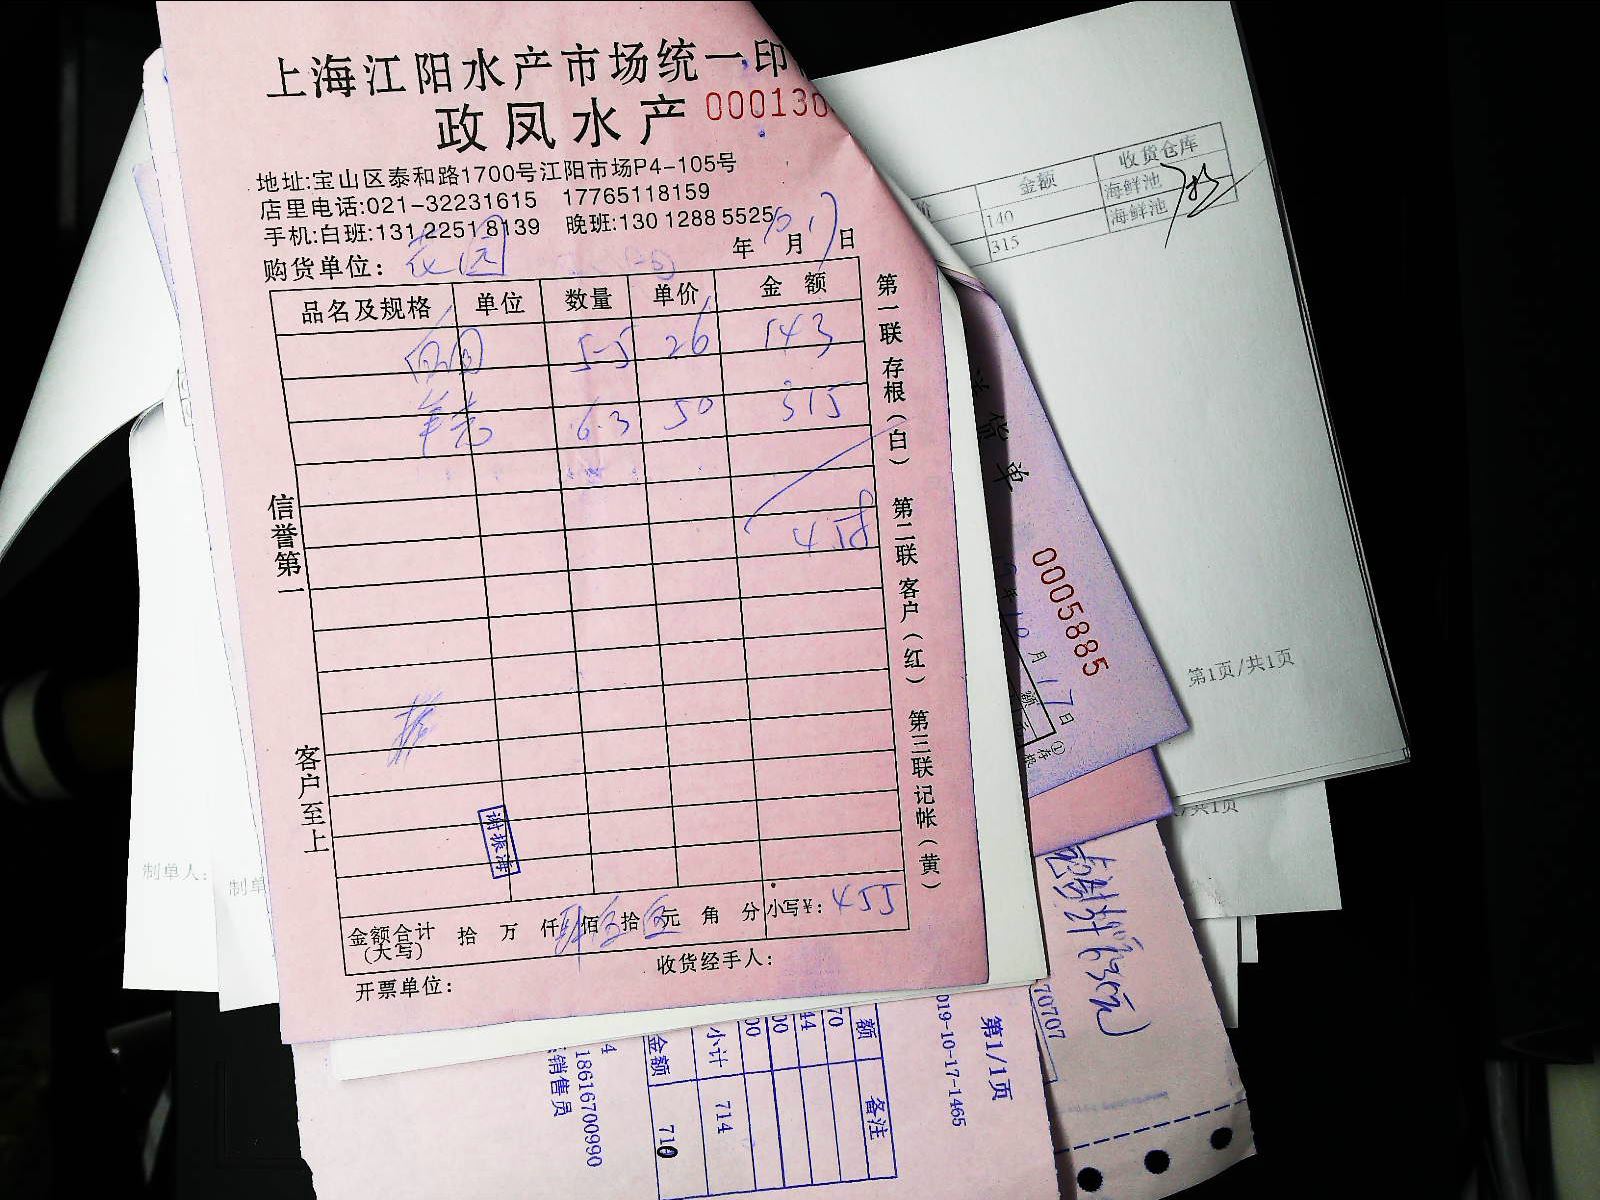 上海江阳水产市场统一印
政凤水产 000130
地址:宝山区泰和路1700号江阳市场P4-105号
店里电话:021-32231615 17765118159
手机:白班:131 2251 8139 晚班:130 1288 5525
购货单位: 花园 年 10 月 17 日
品名及规格 单位 数量 单价 金额
5-5 26 143
6.3 50 315
458
第一联存根(白) 第二联客户(红) 第三联记帐(黄)
信誉第一
客户至上
谢振海
金额合计(大写) 拾 万 仟 肆 佰 伍 拾 伍 元 角 分 小写¥: 455
开票单位: 收货经手人:
价 金额 收货仓库
140 海鲜池
315 海鲜池
第1页/共1页
共1页
货单
0005885
年 10 月 17 日
额
①存根
制单人:
制单
70707
第1/1页
019-10-17-1465
额 备注
70
44
00
00
小计 714
金额 710
4
18616700990
销售员